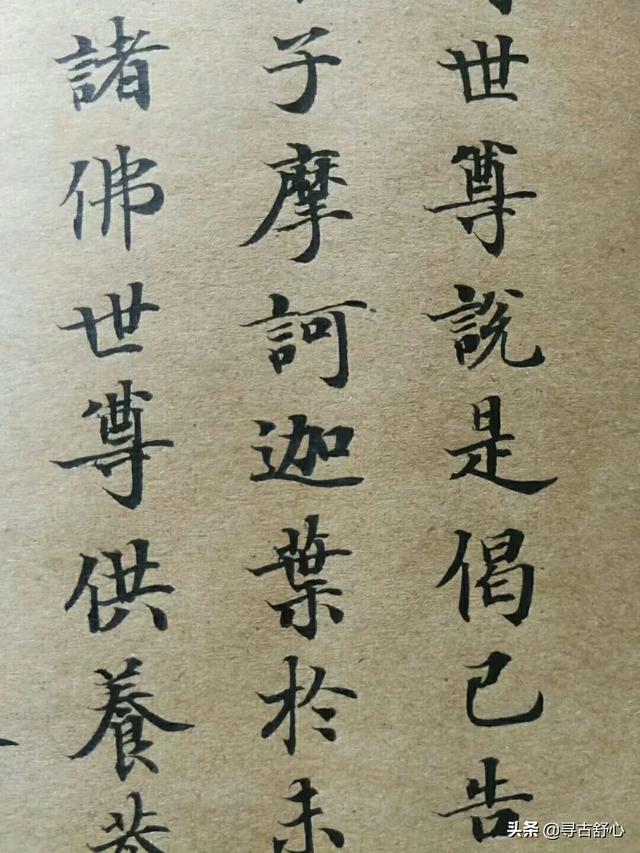 世尊說是偈已告
子摩訶迦葉於未
諸佛世尊供養恭
头条 @寻古舒心